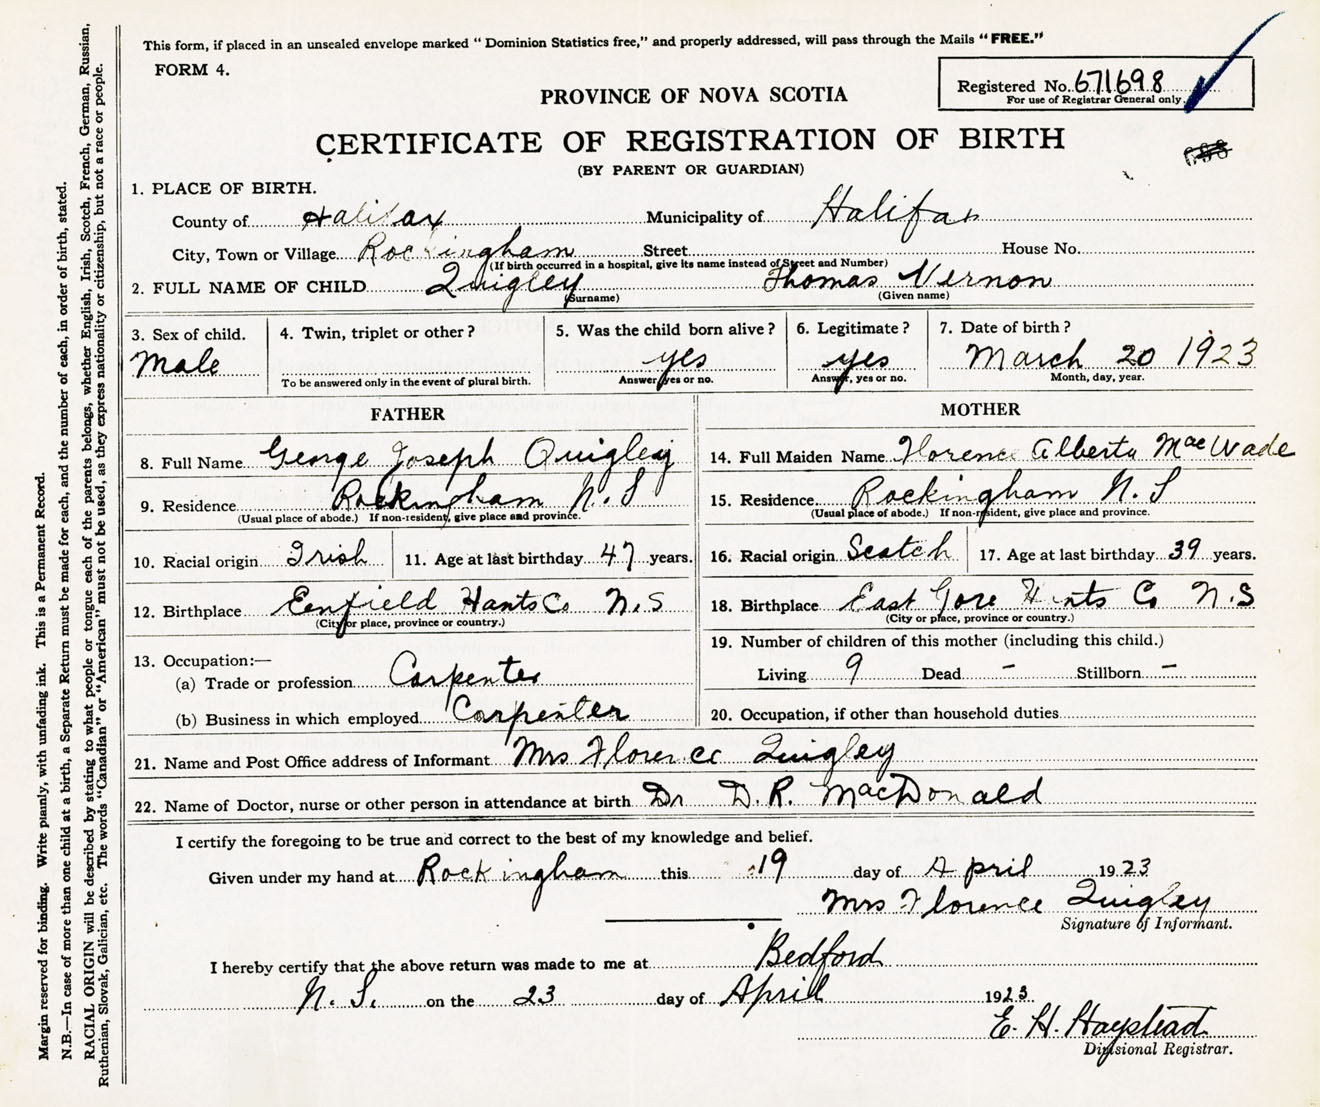 This form, if placed in an unsealed envelope marked "Dominion Statistics free," and properly addressed, will pass through the Mails "FREE."
FORM 4.
Registered No. 671698
For use of Registrar General only
PROVINCE OF NOVA SCOTIA
CERTIFICATE OF REGISTRATION OF BIRTH
(BY PARENT OR GUARDIAN)
1. PLACE OF BIRTH.
County of Halifax Municipality of Halifax
City, Town or Village Rockingham Street House No.
(If birth occurred in a hospital, give its name instead of Street and Number)
2. FULL NAME OF CHILD Quigley Thomas Vernon
(Surname) (Given name)
3. Sex of child. 4. Twin, triplet or other? 5. Was the child born alive? 6. Legitimate? 7. Date of birth?
Male yes yes March 20 1923
To be answered only in the event of plural birth. Answer yes or no. Answer, yes or no. Month, day, year.
FATHER
8. Full Name George Joseph Quigley
9. Residence Rockingham N.S
(Usual place of abode.) If non-resident, give place and province.
10. Racial origin Irish 11. Age at last birthday 47 years.
12. Birthplace Eenfield Hants Co N.S
(City or place, province or country.)
13. Occupation:—
(a) Trade or profession Carpenter
(b) Business in which employed Carpenter
MOTHER
14. Full Maiden Name Florence Alberta MacWade
15. Residence Rockingham N.S
(Usual place of abode.) If non-resident, give place and province.
16. Racial origin Scotch 17. Age at last birthday 39 years.
18. Birthplace East Gore Hants Co N.S
(City or place, province or country.)
19. Number of children of this mother (including this child.)
Living 9 Dead – Stillborn –
20. Occupation, if other than household duties
21. Name and Post Office address of Informant Mrs Florence Quigley
22. Name of Doctor, nurse or other person in attendance at birth Dr D.R. MacDonald
I certify the foregoing to be true and correct to the best of my knowledge and belief.
Given under my hand at Rockingham this 19 day of April 1923
Mrs Florence Quigley
Signature of Informant.
I hereby certify that the above return was made to me at Bedford
N.S. on the 23 day of April 1923.
E. H. Haystead
Divisional Registrar.
Margin reserved for binding. Write plainly, with unfading ink. This is a Permanent Record.
N.B.—In case of more than one child at a birth, a Separate Return must be made for each, and the number of each, in order of birth, stated.
RACIAL ORIGIN will be described by stating to what people or tongue each of the parents belongs, whether English, Irish, Scotch, French, German, Russian,
Ruthenian, Slovak, Galician, etc. The words "Canadian" or "American" must not be used, as they express nationality or citizenship, but not a race or people.